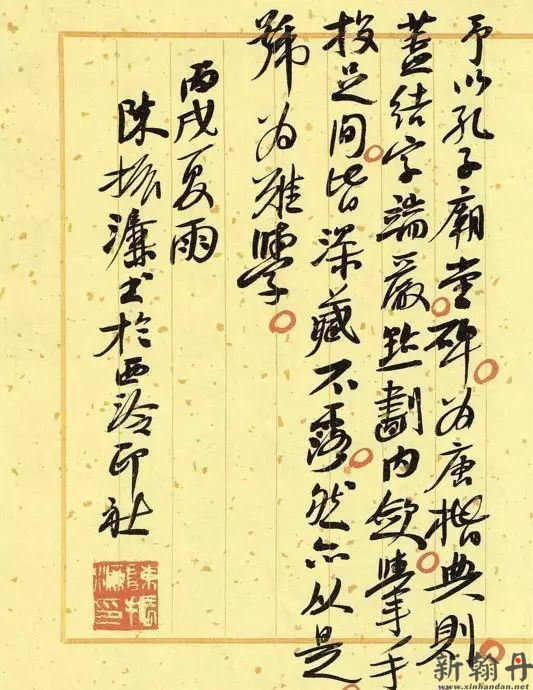 予以孔子廟堂碑。为唐楷典則。
蓋結字端嚴點劃内斂。舉手
投足间。皆深藏不露。然亦以是
號为難學。
丙戌夏雨
陳振濂書於西泠印社
陳振濂印
新翰丹
www.xinhandan.net